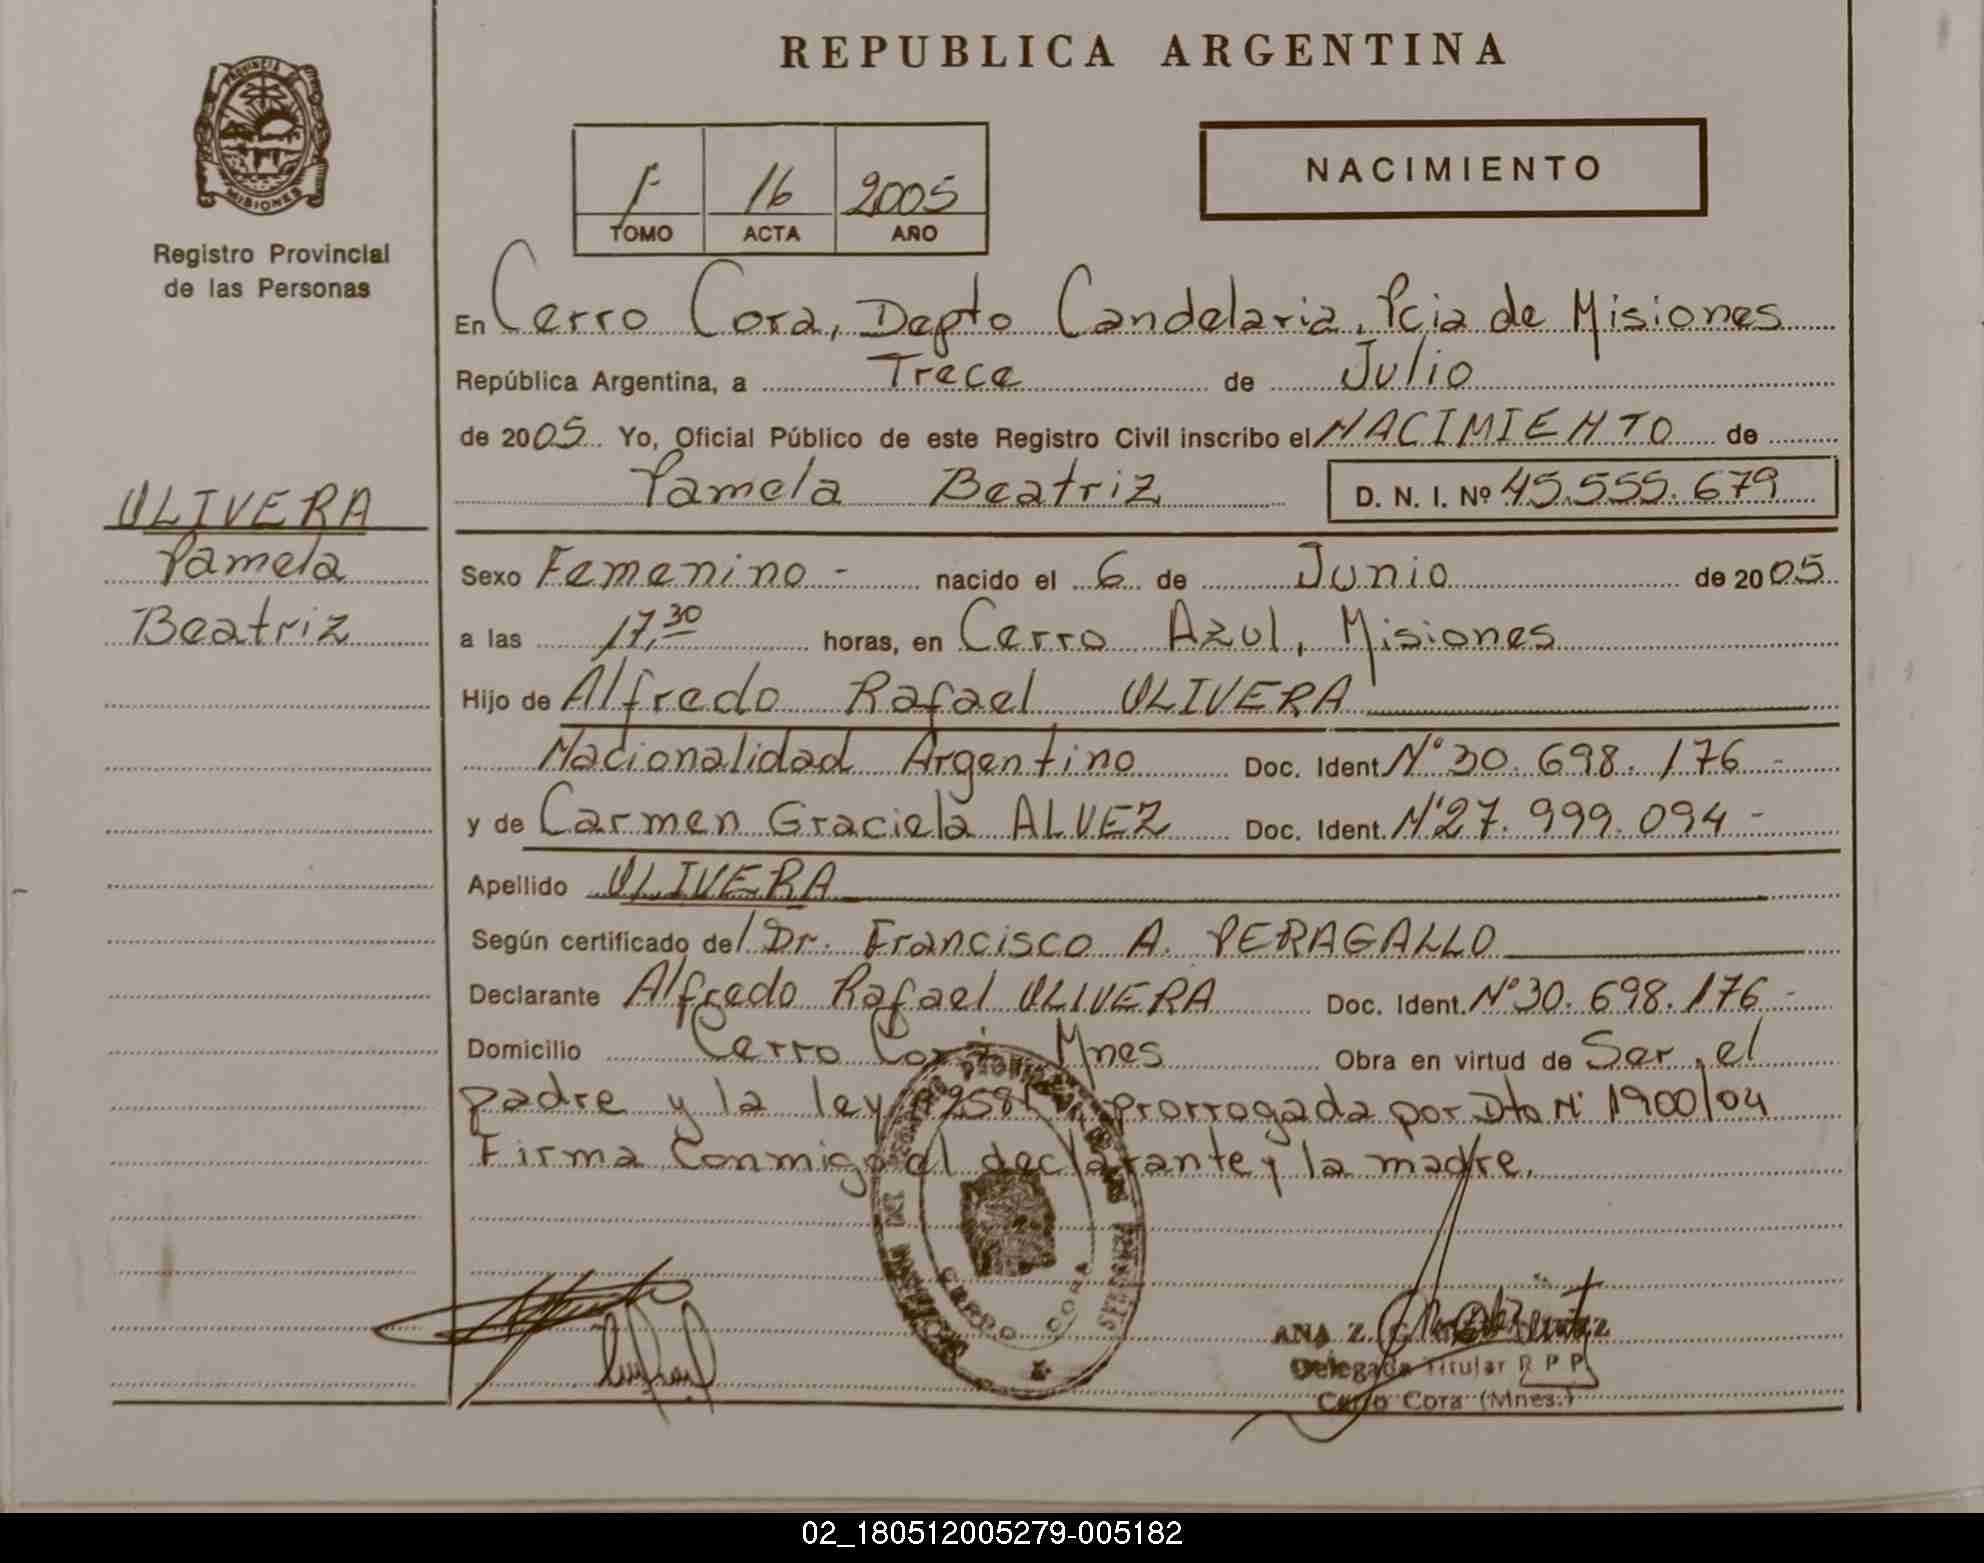 REPUBLICA ARGENTINA
PROVINCIA DE
MISIONES
Registro Provincial
de las Personas
1º 16 2005
TOMO ACTA AÑO
NACIMIENTO
En Cerro Cora, Depto Candelaria, Pcia de Misiones
República Argentina, a Trece de Julio
de 2005 Yo, Oficial Público de este Registro Civil inscribo el NACIMIENTO de
Pamela Beatriz D. N. I. Nº 45.555.679
OLIVERA
Pamela
Beatriz
Sexo Femenino - nacido el 6 de Junio de 2005
a las 17,30 horas, en Cerro Azul, Misiones
Hijo de Alfredo Rafael OLIVERA
Nacionalidad Argentino Doc. Ident Nº 30.698.176 -
y de Carmen Graciela ALVEZ Doc. Ident. Nº 27.999.094 -
Apellido OLIVERA
Según certificado del Dr. Francisco A. PERAGALLO
Declarante Alfredo Rafael OLIVERA Doc. Ident. Nº 30.698.176 -
Domicilio Cerro Corá Mnes Obra en virtud de Ser, el
padre y la ley prorrogada por Dto Nº 1900/04
Firma Conmigo el declarante y la madre.
CERRO CORA
ANA Z.
Delegada Titular R P P
Cerro Cora (Mnes.)
02_180512005279-005182